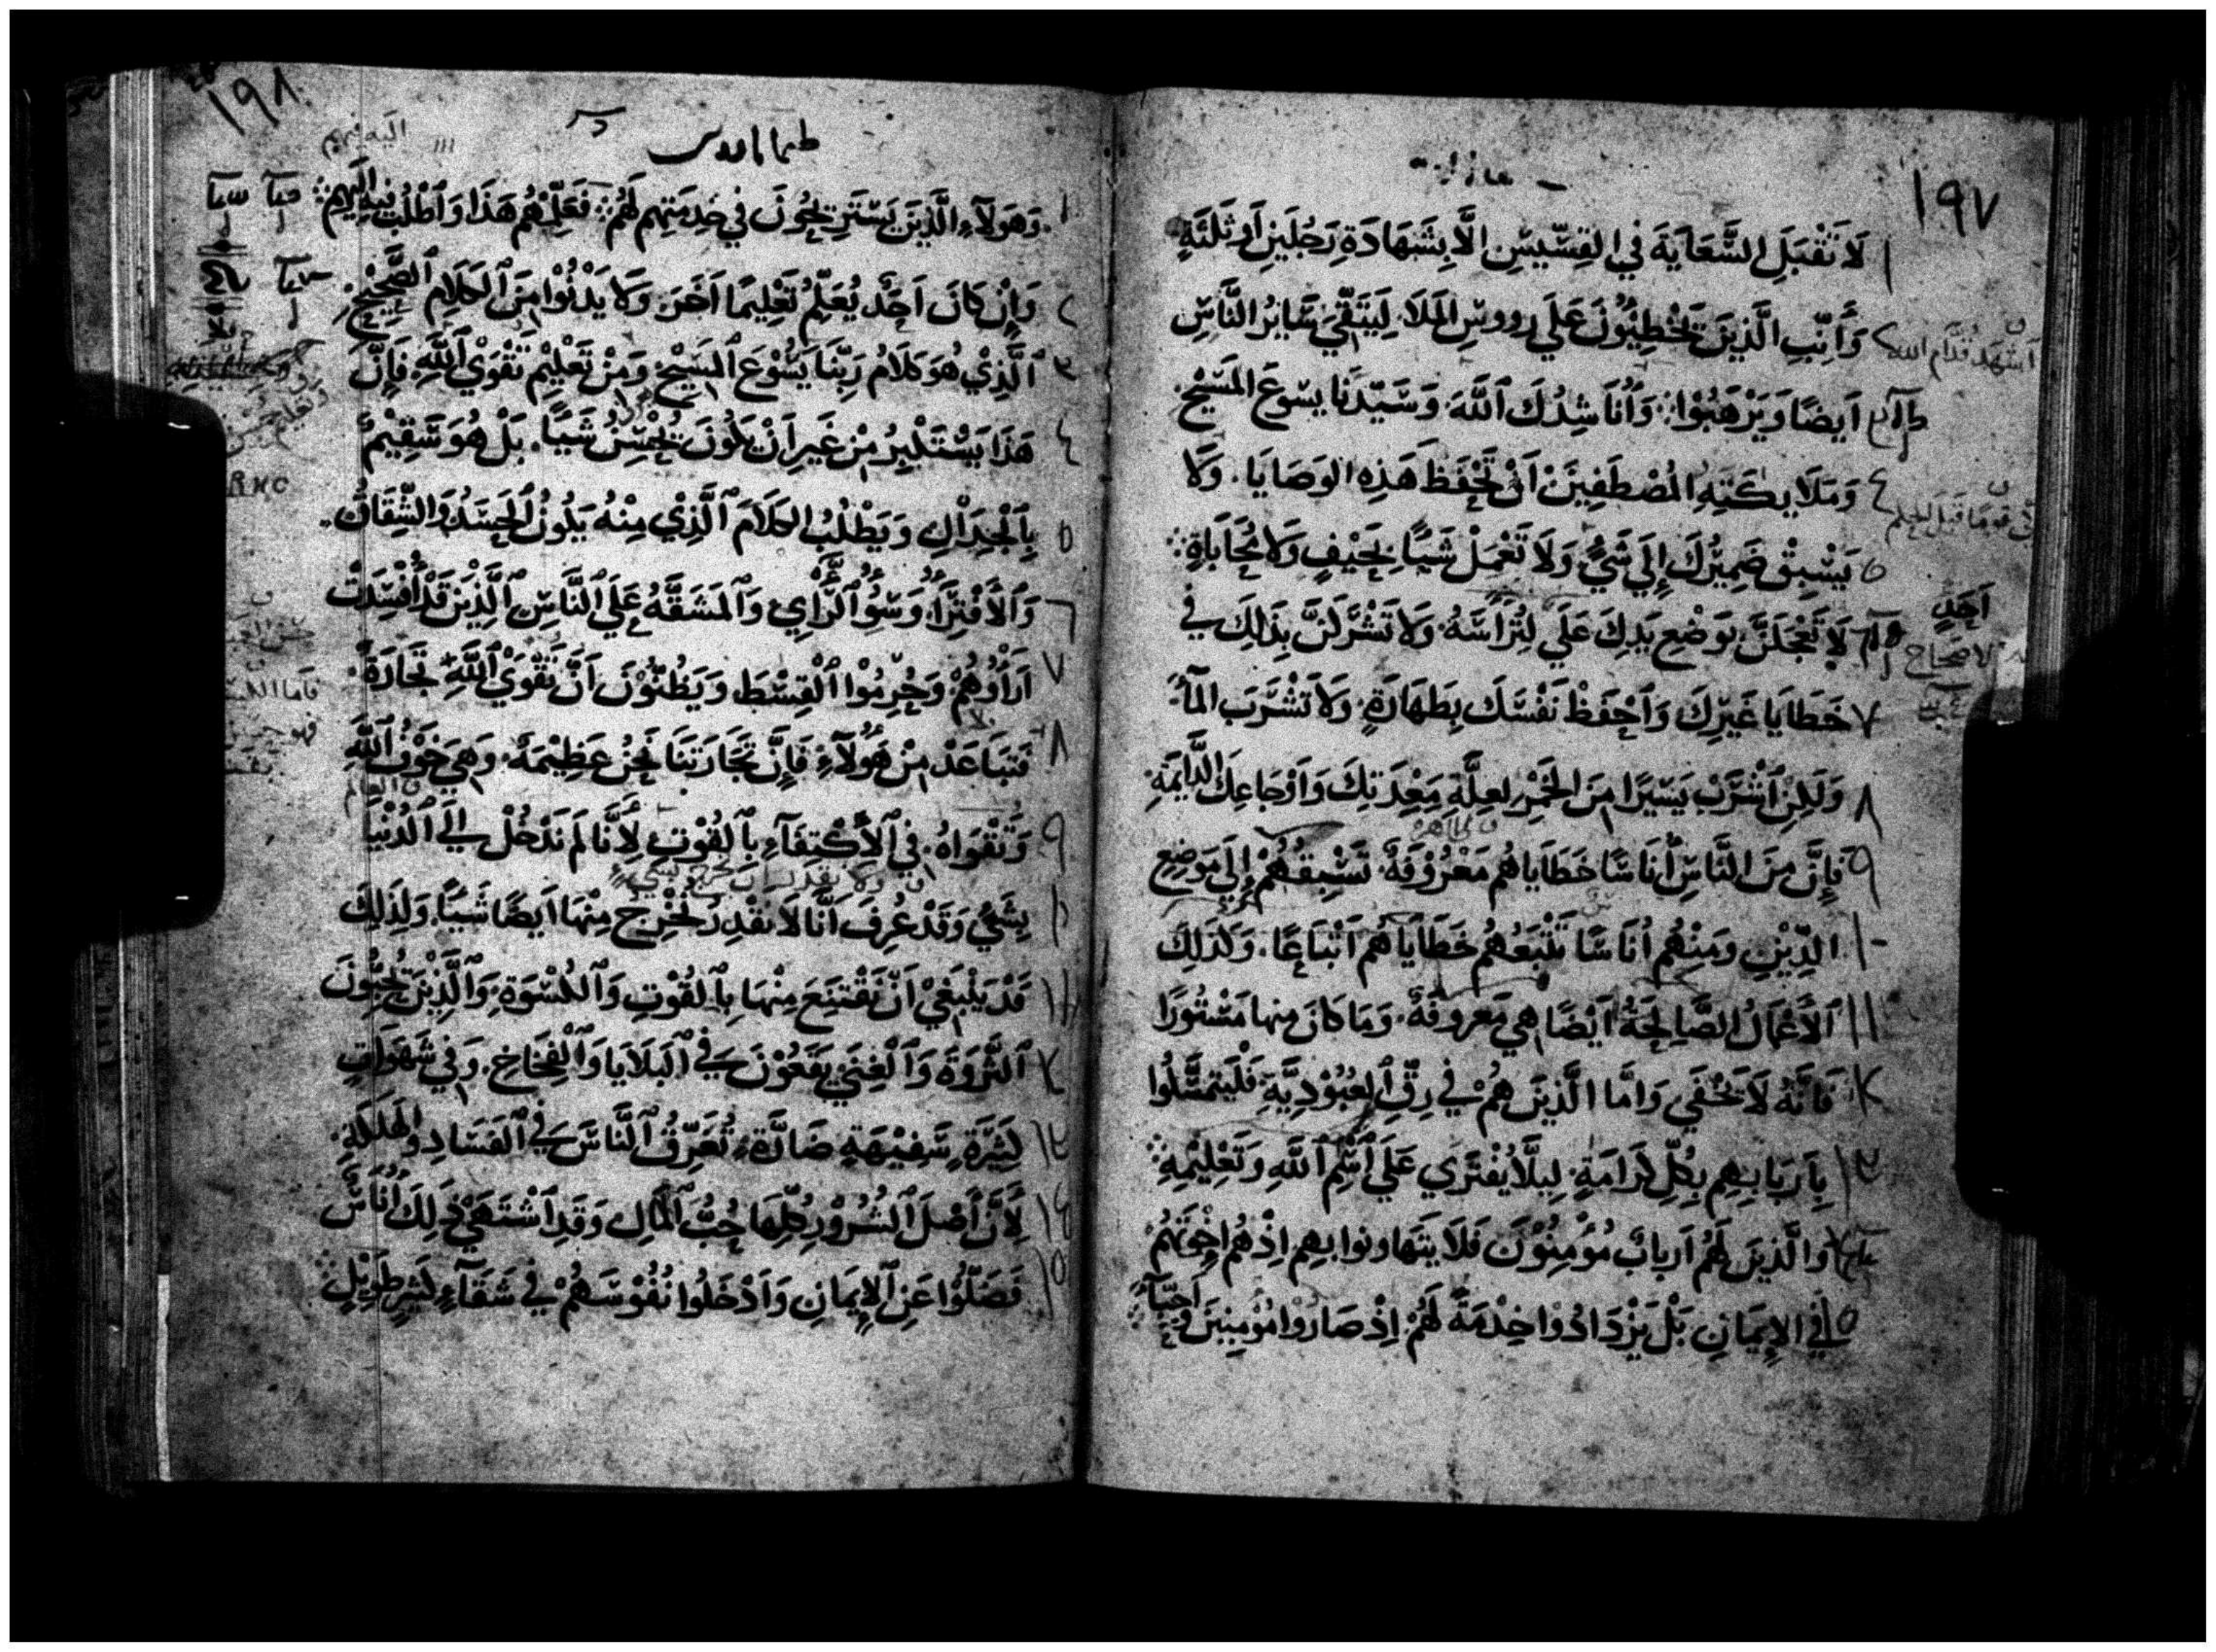 ١٩٧
١ لَا تَقْبَلِ السَّعَايَةَ فِي القِسِّيسِ اِلَّا بِشَهَادَةِ رَجُلَينِ اَو ثَلثَةٍ
٢ وَأَنِّبِ الَّذِينَ يَخْطِيُونَ عَلَي رووسِ المَلَا. لِيَتَّقِيَ سَايرُ النَّاسِ
اَيضًا وَيَرْهَبُوْا. وَأُنَاشِدُكَ ٱللَّهَ وَسَيّدَنَا يسوعَ المَسِيْحَ
٤ وَمَلَايكَتِهِ المُصْطَفِينَ اَنْ تَحْفَظَ هَذِهِ الوَصَايَا. وَلَا
٥ يَسْبِقْ ضَمِيْرُكَ إِلَي شَيٍ وَلَا تَعْمَلْ شَيًا بِحَيْفٍ وَلَا مُحَابَاةٍ
لَا تَعْجَلَنَّ بِوَضْعِ يَدِكَ عَلَي اَحَدٍ وَلَا تَشْتَرِكَنَّ بِذَلِكَ في
٧ خَطَايَا غَيْرِكَ وَاَحْفَظْ نَفْسَكَ بِطَهَارَةٍ وَلَا تَشْرَبِ المَآ
٨ وَلَكِنِ ٱشْرَبْ يَسِيْرًا مِنَ الخَمْرِ لِعِلَّةِ مِعْدَتِكَ وَاَوْجَاعِكَ الدَّايِمَةِ
٩ فَإِنَّ مِنَ النَّاسِ أُنَاسًا خَطَايَاهُم مَعْرُوْفَةٌ تَسْبِقُهُمْ إِلَي مَوضِعِ
١٠ الدِّيْنِ وَمِنْهُم اُنَاسًا تَتْبَعُهُمْ خَطَايَاهُم اَتْبَاعًا. وَكَذَلِكَ
١١ ٱلأَعْمَالُ الصَّالِحَةُ اَيْضًا هِي مَعروفَةٌ. وَمَا كَانَ مِنها مَسْتُورًا
١٢ فَاِنَّهُ لَا يَخْفَي وَاَمَّا الَّذِينَ هُمْ في رِقِّ ٱلعُبُوْدِيَّةِ فَلْيَتَمَسَّكُوا
١٣ بِاَرْبَابِهِم بِكُلِّ كَرَامَةٍ. لِيلَّا يُفْتَرَي عَلَي ٱسْمِ ٱللَّهِ وَتَعْلِيْمِهِ
وَالَّذِينَ لَهُم اَربابٌ مُوْمِنُوْنَ فَلَا يَتَهَاونوا بِهِم اِذْ هُم اِخْوَتُهُمْ
١٥ في الاِيمَانِ بَلْ يَزْدَادُوْا خِدْمَةً لَهُمْ اِذْ صَارُوا مُوْمِنِينَ وَاَحِبَّآ
١٩٨
طيماتاوس
١ وَهَوُلَآءِ الَّذِينَ يَسْتَرِيحُونَ فِي خِدمَتِهِم لَهُمْ فَعَلِّمْهُم هَذَا وَٱطْلُبْ فِيهِ اِلَيهِم
٢ وَإِنْ كَانَ اَحَدٌ يُعَلِّمُ تَعْلِيمًا اَخَرَ وَلَا يَدْنُوْا مِنَ ٱلكَلَامِ ٱلصَّحِيْحِ
٣ ٱلَّذِيْ هُوَ كَلَامُ رَبِّنَا يَسُوْعَ ٱلمَسِيْحِ وَمِنْ تَعْلِيْمِ تَقْوَيْ ٱللَّهِ فَإِنَّ
٤ هَذَا يَسْتَكْبِرُ مِنْ غَيرِ اَنْ يَكُونَ يُحْسِنُ شَيًا. بَلْ هُوَ سَقِيْمٌ
٥ بِٱلْجِدَالِ وَيَطْلُبُ الكَلَامَ ٱلَّذِيْ مِنْهُ يَكُونُ ٱلحَسَدُ وَالشِّقَاقُ
٦ وَٱلأَفْتِرَآ وَسُوُ ٱلرَّايِ وَٱلمَشَقَّةُ عَلَي ٱلنَّاسِ ٱلَّذِيْنَ قَدْ أُفْسِدَتْ
٧ آرَاوُهُمْ وَحُرِمُوْا ٱلقِسْطَ وَيَظُنُّوْنَ اَنَّ تَقْوَيْ ٱللَّهِ تِجَارَةٌ
٨ فَتَبَاعَدْ مِنْ هَوُلَآءِ فَإِنَّ تِجَارَتَنَا نَحْنُ عَظِيْمَةٌ. وَهِيَ خَوْفُ ٱللَّهِ
٩ وَتَقْوَاهُ. فِي ٱلأَكْتِفَآءِ بِٱلقُوْتِ لِأَنَّا لَم نَدْخُلْ إِلَي ٱلدُّنْيَا
١٠ بِشَيٍ وَقَدْ عُرِفَ اَنَّا لَا نَقْدِرُ نُخْرِجُ مِنْهَا اَيضًا شَيًا. وَلِذَلِكَ
١١ قَدْ يَنْبَغِيْ اَنْ نَقْتَنِعَ مِنْهَا بِٱلقُوْتِ وَٱلكُسْوَةِ. وَٱلَّذِيْنَ يُحِبُّونَ
١٢ ٱلثَّرْوَةَ وَٱلغِنَي يَقَعُوْنَ فِي ٱلبَلَايَا وَٱلفِخَاخِ. وَفِي شَهَوَاتٍ
١٣ كَثِيْرَةٍ سَفِيْهَةٍ ضَارَّةٍ تُغَرِّقُ ٱلنَّاسَ فِي ٱلفَسَادِ وَالهَلَكَةِ
١٤ لِأَنَّ أَصْلَ ٱلشُّرُوْرِ كُلِّهَا حُبُّ ٱلمَالِ وَقَدِ ٱشْتَهَي ذَلِكَ اُنَاسٌ
١٥ فَضَلُّوْا عَنِ ٱلاِيمَانِ وَاَدْخَلُوا نُفُوْسَهُمْ فِي شَقَآءٍ كَثِيرٍ طَوِيْلٍ